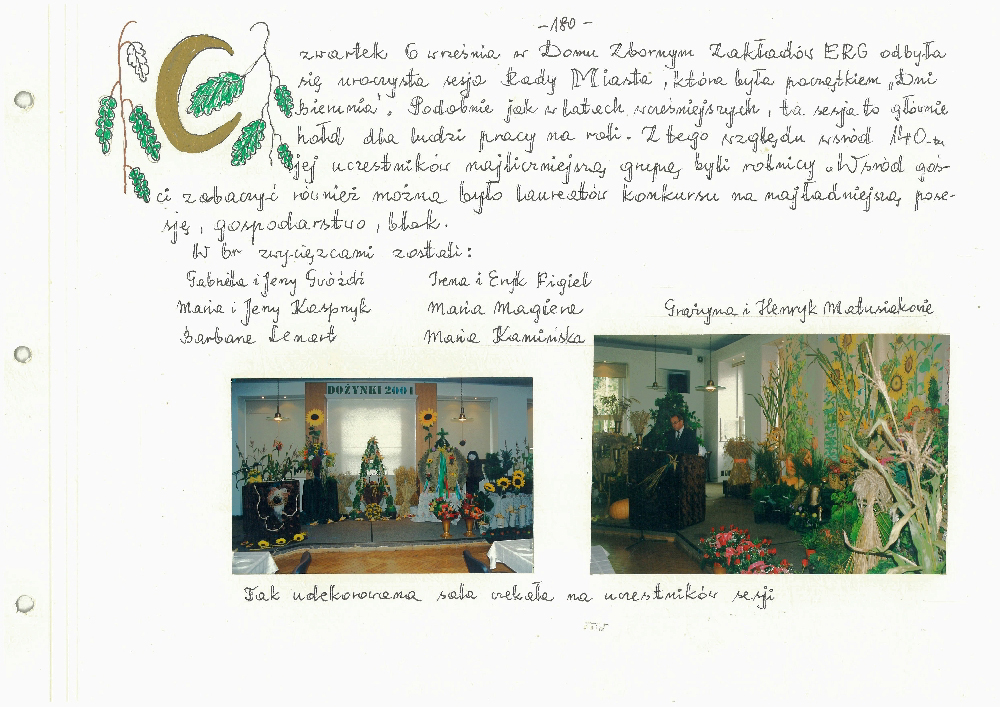 -180-
Czwartek 6 września w Domu Zbornym Zakładów ERG odbyła
się uroczysta sesja Rady Miasta, która była początkiem „Dni
Bierunia". Podobnie jak w latach wcześniejszych, ta sesja to głównie
hołd dla ludzi pracy na roli. Z tego względu wśród 140-tu
jej uczestników najliczniejszą grupą byli rolnicy. Wśród goś-
ci zobaczyć również można było laureatów konkursu na najładniejszą pose-
sję, gospodarstwo, blok.
W br zwycięzcami zostali:
Gabriela i Jerzy Gwóźdź Irena i Eryk Figiel
Maria i Jerzy Kasprzyk Maria Magiera Grażyna i Henryk Matusiakowie
Barbara Lenart Maria Kamińska
DOŻYNKI 2001
Tak udekorowana sala czekała na uczestników sesji